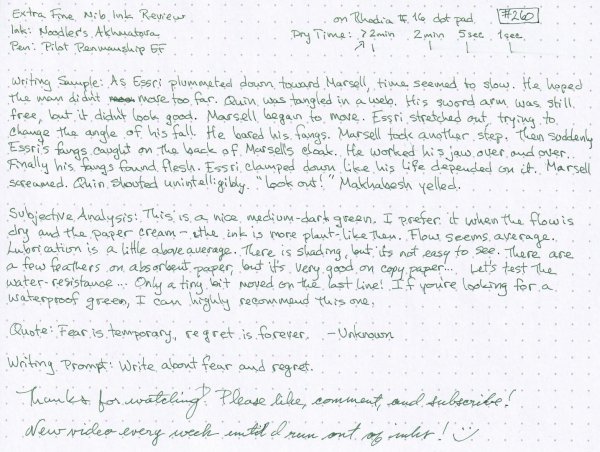 Extra Fine Nib Ink Review on Rhodia № 16 dot pad #260
Ink: Noodler's Akhmatova Dry Time: >2min 2min 5sec 1sec
Pen: Pilot Penmanship EF
Writing Sample: As Essri plummeted down toward Marsell, time seemed to slow. He hoped
the man didn't move too far. Quin was tangled in a web. His sword arm was still
free, but it didn't look good. Marsell began to move. Essri stretched out, trying to
change the angle of his fall. He bared his fangs. Marsell took another step. Then suddenly
Essri's fangs caught on the back of Marsell's cloak. He worked his jaw over and over.
Finally his fangs found flesh. Essri clamped down like his life depended on it. Marsell
screamed. Quin shouted unintelligibly. "Look out!" Makhabesh yelled.
Subjective Analysis: This is a nice medium-dark green. I prefer it when the flow is
dry and the paper cream - the ink is more plant-like then. Flow seems average.
Lubrication is a little above average. There is shading, but it's not easy to see. There are
a few feathers on absorbent paper, but it's very good on copy paper... Let's test the
water-resistance... Only a tiny bit moved on the last line! If you're looking for a
waterproof green, I can highly recommend this one.
Quote: Fear is temporary, regret is forever. -Unknown
Writing Prompt: Write about fear and regret.
Thanks for watching! Please like, comment, and subscribe!
New video every week until I run out of inks!